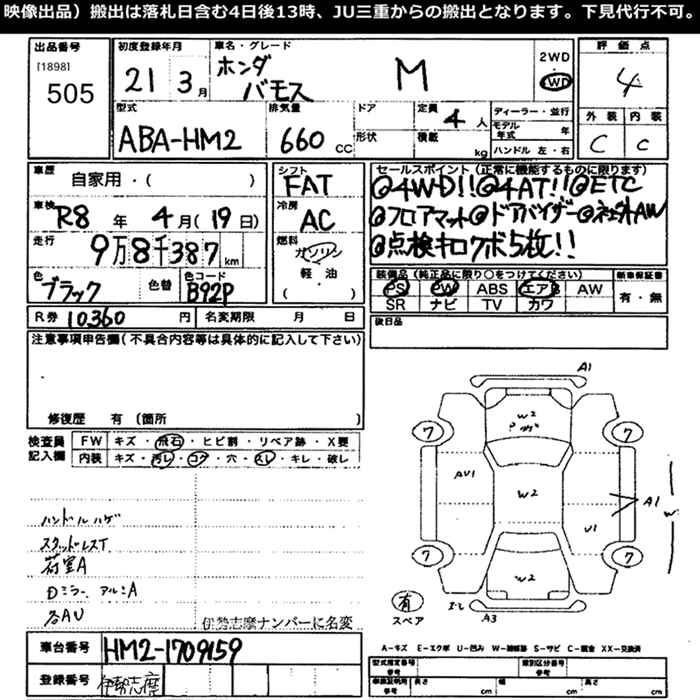 映像出品）搬出は落札日含む4日後13時、JU三重からの搬出となります。下見代行不可。
出品番号
[1898]
505
初度登録年月
21 3月
車名・グレード
ホンダ
バモス
M
2WD
4WD
評価点
4
外装 内装
C C
型式
ABA-HM2
排気量
660 CC
ドア
形状
定員 4 人
積載 kg
ディーラー・並行
モデル年式 年
ハンドル 左・右
車歴
自家用・( )
車検
R8 年 4 月(19 日)
走行
9万8千387 km
色
ブラック
色替
色コード
B92P
シフト
FAT
冷房
AC
燃料
ガソリン
軽・油
( )
セールスポイント (正常に機能するものに限ります)
@4WD!!@4AT!!@ETC
@フロアマット@ドアバイザー@社外AW
@点検キロクボ5枚!!
装備品(純正品に限り○をつけてください)
PS PW ABS エアB AW
SR ナビ TV カワ
新車保証書
有・無
R券 10360 円
名変期限 月 日
後日品
注意事項申告欄(不具合内容等は具体的に記入して下さい)
修復歴 有 (箇所 )
検査員
記入欄
FW キズ・飛石・ヒビ割・リペア跡・X要
内装 キズ・汚レ・コゲ・穴・スレ・キレ・破レ
ハンドルハゲ
スタッドレスT
荷室A
Dミラー、アルミA
各AU
伊勢志摩ナンバーに名変
A1
W2
7 7
AU1
W2
A1
W
U1
7 7
W2
有
スペア
A3
A-キズ E-エクボ U-凹み W-補修跡 S-サビ C-腐食 XX-交換済
車台番号
HM2-1709159
登録番号
伊勢志摩
型式指定番号
参考
類別区分番号
参考
長さ cm
幅 cm
高さ cm